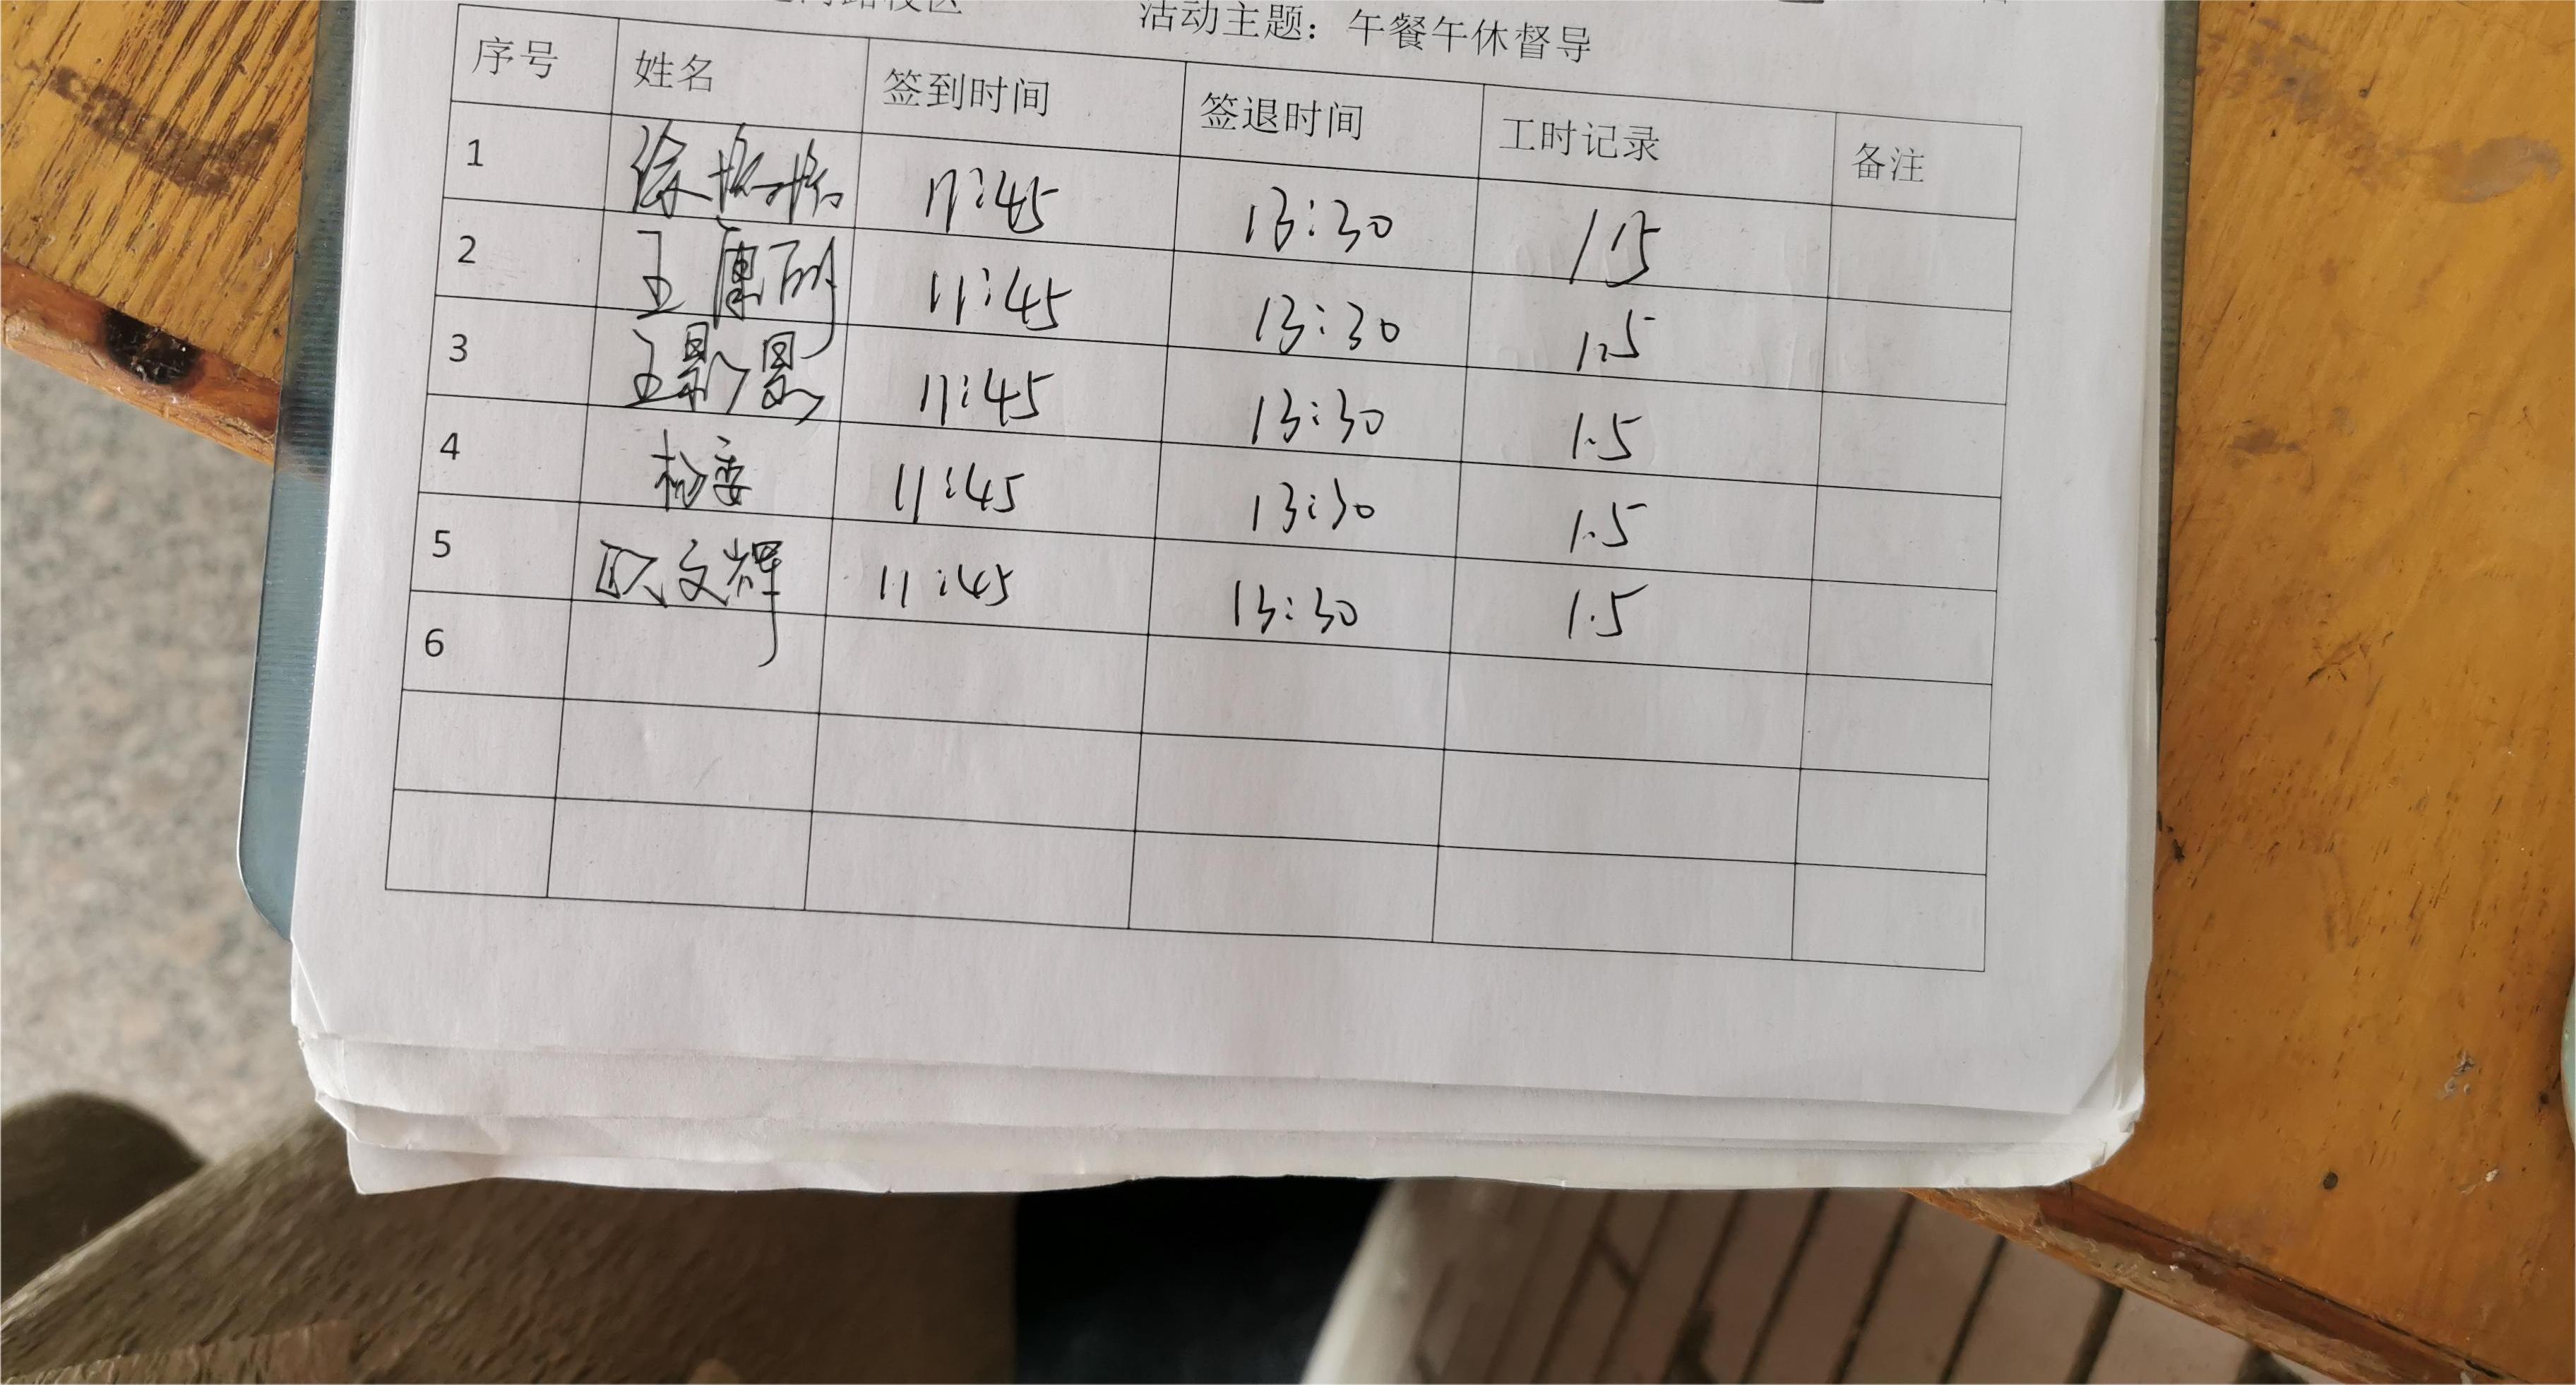 活动主题：午餐午休督导
序号 姓名 签到时间 签退时间 工时记录 备注
1 徐 11:45 13:30 1.5
2 王 11:45 13:30 1.5
3 王影 11:45 13:30 1.5
4 11:45 13:30 1.5
5 欧文辉 11:45 13:30 1.5
6